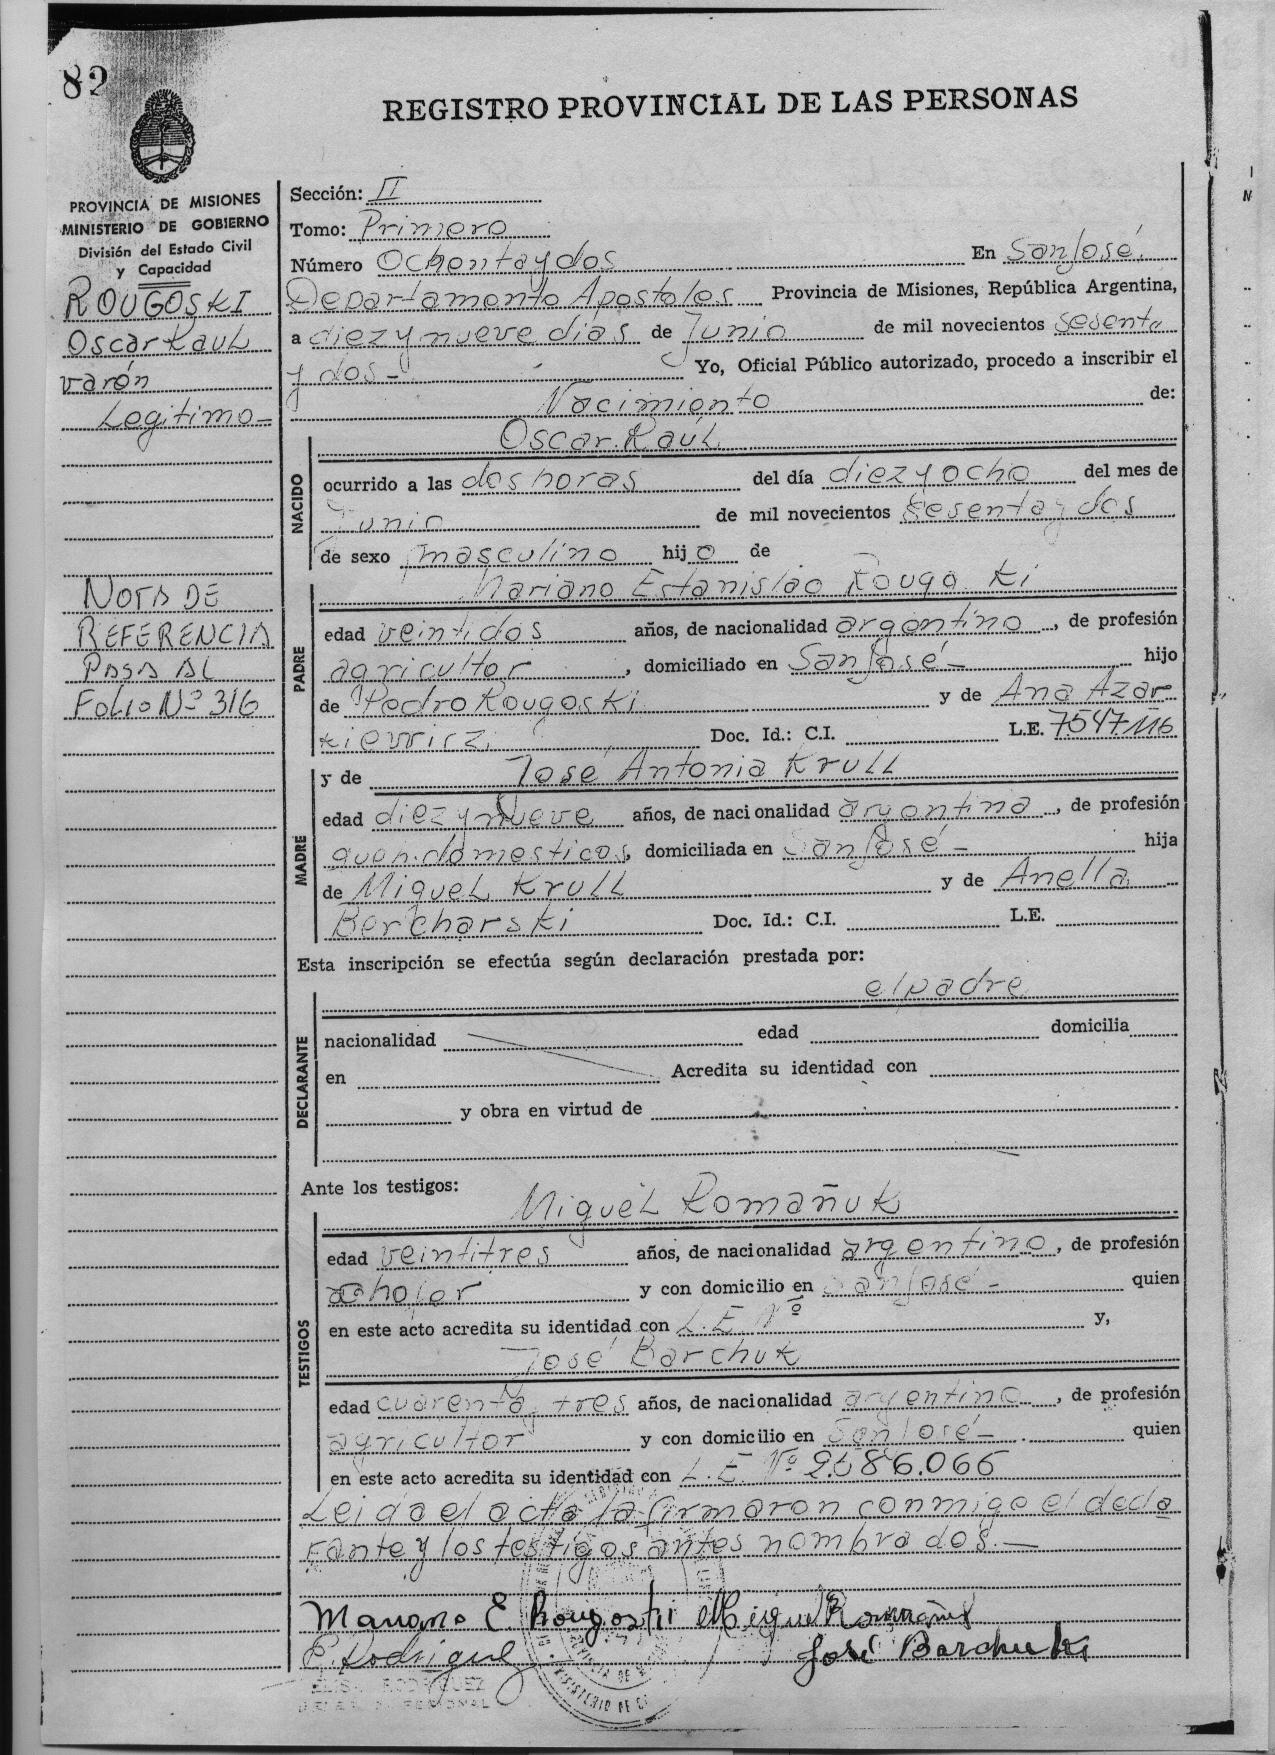 82
REGISTRO PROVINCIAL DE LAS PERSONAS
PROVINCIA DE MISIONES
MINISTERIO DE GOBIERNO
División del Estado Civil
y Capacidad
ROUGOSKI
Oscar Raul
varón
Legitimo-
NOTA DE
REFERENCIA
PASA AL
FOLIO Nº 316
Sección: II
Tomo: Primero
Número Ochentaydos En San José.
Departamento Apostoles Provincia de Misiones, República Argentina,
a diez y nueve dias de Junio de mil novecientos sesenta
y dos- Yo, Oficial Público autorizado, procedo a inscribir el
Nacimiento de:
NACIDO
Oscar Raúl
ocurrido a las dos horas del día diez y ocho del mes de
Junio de mil novecientos sesenta y dos
de sexo masculino hijo de
PADRE
Mariano Estanislao Rougo ki
edad veintidos años, de nacionalidad argentino, de profesión
agricultor, domiciliado en San José- hijo
de Pedro Rougoski y de Ana Azar
kiewicz, Doc. Id.: C.I. L.E. 7547116
MADRE
y de José Antonia Krull
edad diez y nueve años, de nacionalidad argentina, de profesión
queh. domesticos, domiciliada en San José- hija
de Miguel Krull y de Anella
Bercharski Doc. Id.: C.I. L.E.
Esta inscripción se efectúa según declaración prestada por:
DECLARANTE
el padre
nacionalidad edad domicilia
en Acredita su identidad con
y obra en virtud de
Ante los testigos:
TESTIGOS
Miguel Romañuk
edad veintitres años, de nacionalidad argentino, de profesión
chofer y con domicilio en San José- quien
en este acto acredita su identidad con L.E. Nº y,
José Barchuk
edad cuarenta y tres años, de nacionalidad argentino, de profesión
agricultor y con domicilio en San José- quien
en este acto acredita su identidad con L.E. Nº 2.686.066
Leida el acta la firmaron conmigo el decla
rante y los testigos antes nombrados.-
Mariano E. Rougoski Miguel Romañuk
E. Rodriguez José Barchuk
ELISA RODRIGUEZ